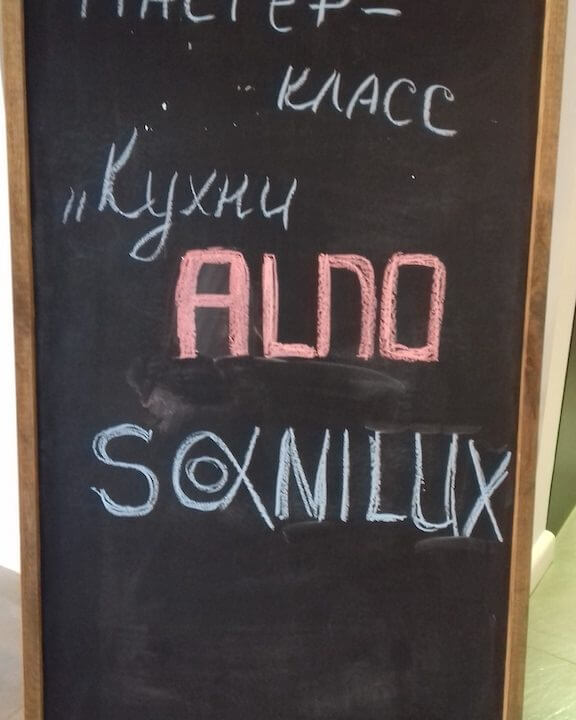 МАСТЕР-
КЛАСС
„Кухни
ALNO
SANILUX